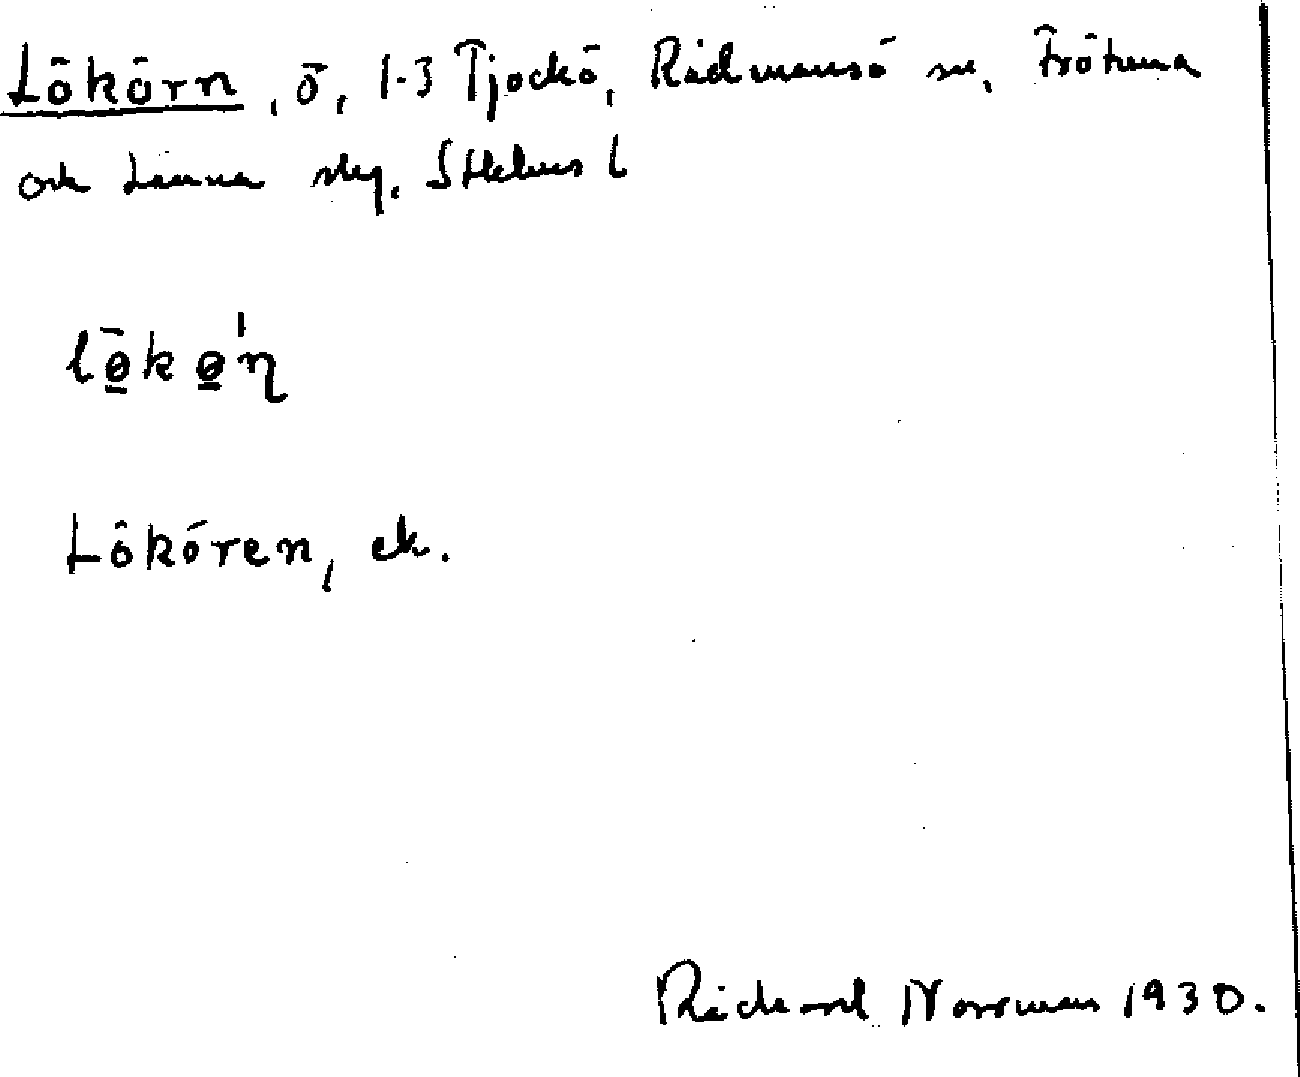 Lökörn, ö, 1-3 Tjockö, Rådmansö sn, Frötuna
och Länna slg. Sthlms l
lō̲kө̲'ɳ
Lökören, ek.
Richard Norrman 1930.